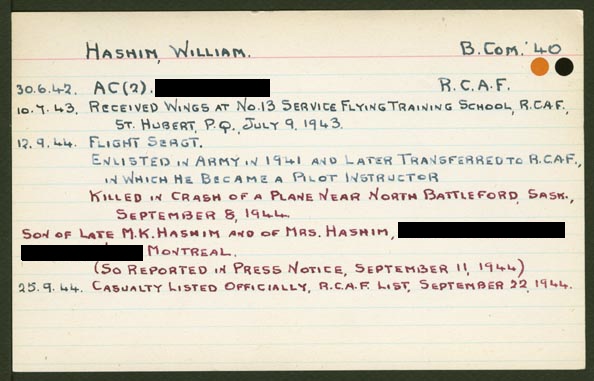 HASHIM, WILLIAM. B.COM.'40
30.6.42. AC(2). R.C.A.F.
10.7.43. RECEIVED WINGS AT NO.13 SERVICE FLYING TRAINING SCHOOL, R.C.A.F.,
ST. HUBERT, P.Q., JULY 9, 1943.
12.9.44. FLIGHT SERGT.
ENLISTED IN ARMY IN 1941 AND LATER TRANSFERRED TO R.C.A.F.,
IN WHICH HE BECAME A PILOT INSTRUCTOR
KILLED IN CRASH OF A PLANE NEAR NORTH BATTLEFORD, SASK.,
SEPTEMBER 8, 1944.
SON OF LATE M.K. HASHIM AND OF MRS. HASHIM,
MONTREAL.
(SO REPORTED IN PRESS NOTICE, SEPTEMBER 11, 1944)
25.9.44. CASUALTY LISTED OFFICIALLY, R.C.A.F. LIST, SEPTEMBER 22, 1944.